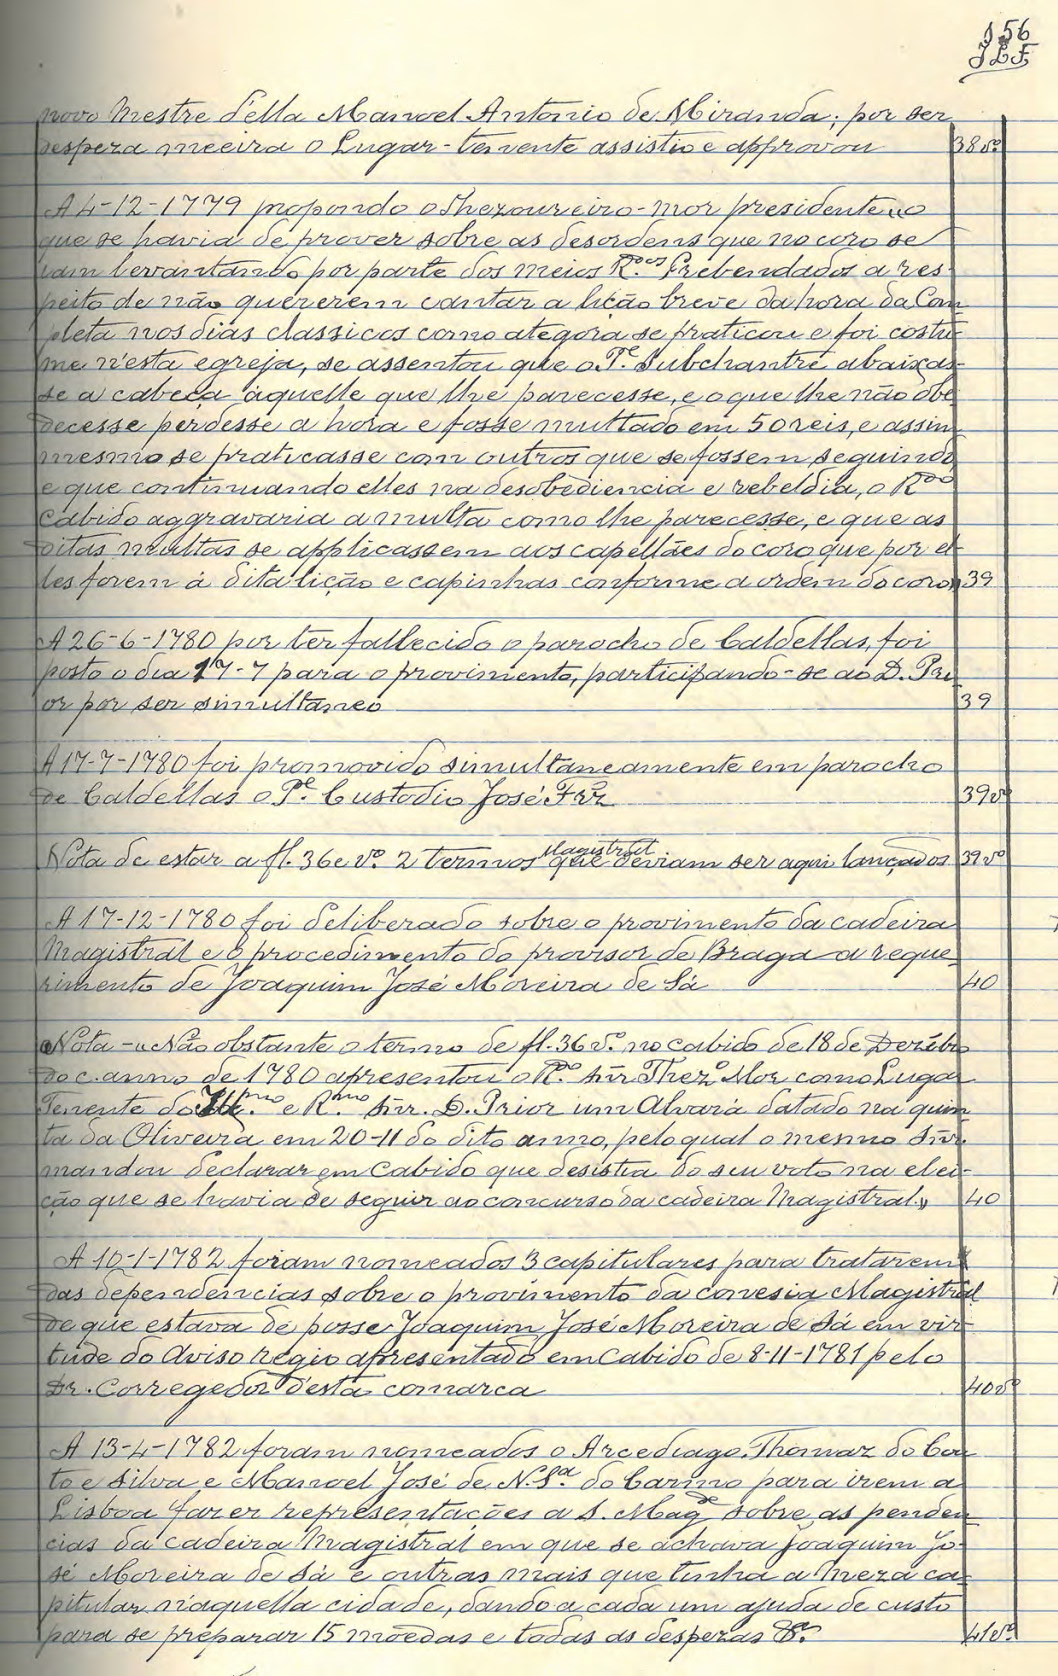 156
JLF
novo Mestre d'ella Manoel Antonio de Miranda; por ser
despeza meeira o Lugar-tenente assistiu e approvou 38 vº
A 4-12-1779 propondo o Thezoureiro-Mor presidente "o
que se havia de prover sobre as desordens que no coro se
iam levantando por parte dos meios R.ᵒˢ Prebendados a res-
peito de não quererem cantar a lição breve da hora da Com
pleta nos dias classicos como ategora se praticou e foi costu
me n'esta egreja, se assentou que o P.ᵉ Subchantre abaixas-
se a cabeça áquelle que lhe parecesse, e o que lhe não obe
decesse perdesse a hora e fosse multado em 50 reis, e assim
mesmo se praticasse com outros que se fossem seguindo
e que continuando elles na desobediencia e rebeldia, o Rᵈᵒ
Cabido aggravaria a multa como lhe parecesse, e que as
ditas multas se applicassem aos capellães do coro que por el-
les forem á dita lição e capinhas conforme a ordem do coro" 39
A 26-6-1780 por ter fallecido o parocho de Caldellas, foi
posto o dia 17-7 para o provimento, participando-se ao D. Pri
or por ser simultaneo 39
A 17-7-1780 foi promovido simultaneamente em parocho
de Caldellas o P.ᵉ Custodio José Frz 39 vº
Nota de estar a fl. 36 e vº. 2 termos Magistral que deviam ser aqui lançados 39 vº
A 17-12-1780 foi deliberado sobre o provimento da cadeira
Magistral e o procedimento do provisor de Braga a reque-
rimento de Joaquim José Moreira de Sá 40
Nota - "Não obstante o termo de fl. 36 vº. no cabido de 18 de Dezbro
do c. anno de 1780 apresentou o R.º Snr. Thezº Mor como Lugar
Tenente do Ill.ᵐᵒ e R.ᵐᵒ Snr. D. Prior um Alvará datado na quin
ta da Oliveira em 20-11 do dito anno, pelo qual o mesmo Snr.
mandou declarar em Cabido que desistia do seu voto na elei-
ção que se havia de seguir ao concurso da cadeira Magistral" 40
A 10-1-1782 foram nomeados 3 capitulares para tratarem
das dependencias sobre o provimento da conesia Magistral
de que estava de posse Joaquim José Moreira de Sá em vir-
tude do Aviso regio apresentado em Cabido de 8-11-1781 pelo
Dr. Corregedor d'esta comarca 40 vº
A 13-4-1782 foram nomeados o Arcediago Thomaz do Cou
to e Silva e Manoel José de N. Sª. do Carmo para irem a
Lisboa fazer representações a S. Magᵈᵉ sobre as penden
cias da cadeira Magistral em que se achava Joaquim Jo-
sé Moreira de Sá e outras mais que tinha a Meza ca-
pitular n'aquella cidade, dando a cada um ajuda de custo
para se preparar 15 moedas e todas as despezas &. 41 vº